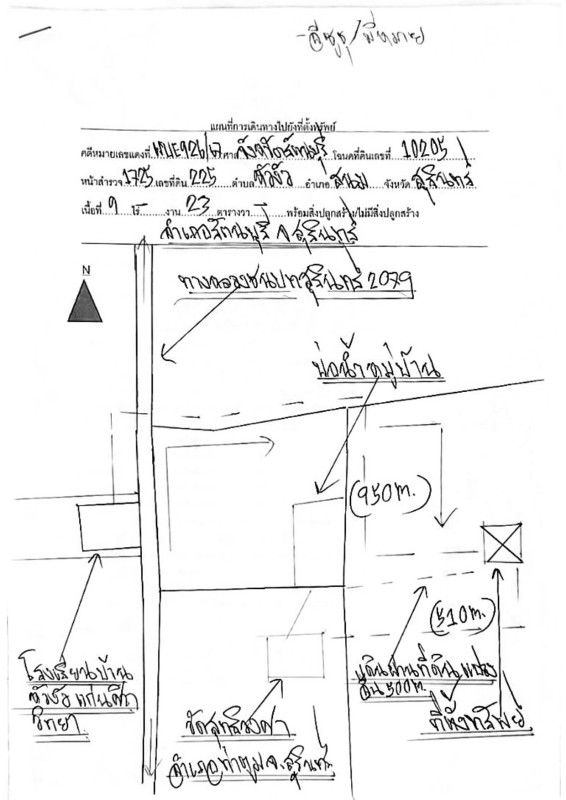 แผนที่การเดินทางไปยังที่ตั้งทรัพย์
คดีหมายเลขแดงที่ ผบE926/67 ศาล จังหวัดรัตนบุรี โฉนดที่ดินเลขที่ 10205
หน้าสำรวจ 1725 เลขที่ดิน 225 ตำบล หัวงัว อำเภอ สนม จังหวัด สุรินทร์
เนื้อที่ 9 ไร่ งาน 23 ตารางวา พร้อมสิ่งปลูกสร้าง/ไม่มีสิ่งปลูกสร้าง
อำเภอรัตนบุรี จ.สุรินทร์
N
ทางหลวงชนบทสุรินทร์ 2079
บ่อน้ำหมู่บ้าน
(950 m.)
(510 m.)
โรงเรียนบ้าน
หัวงัว
วิทยา
เดินผ่านที่ดินแปลง
อื่น 500 m.
ที่ตั้งทรัพย์
อำเภอท่าตูม จ.สุรินทร์